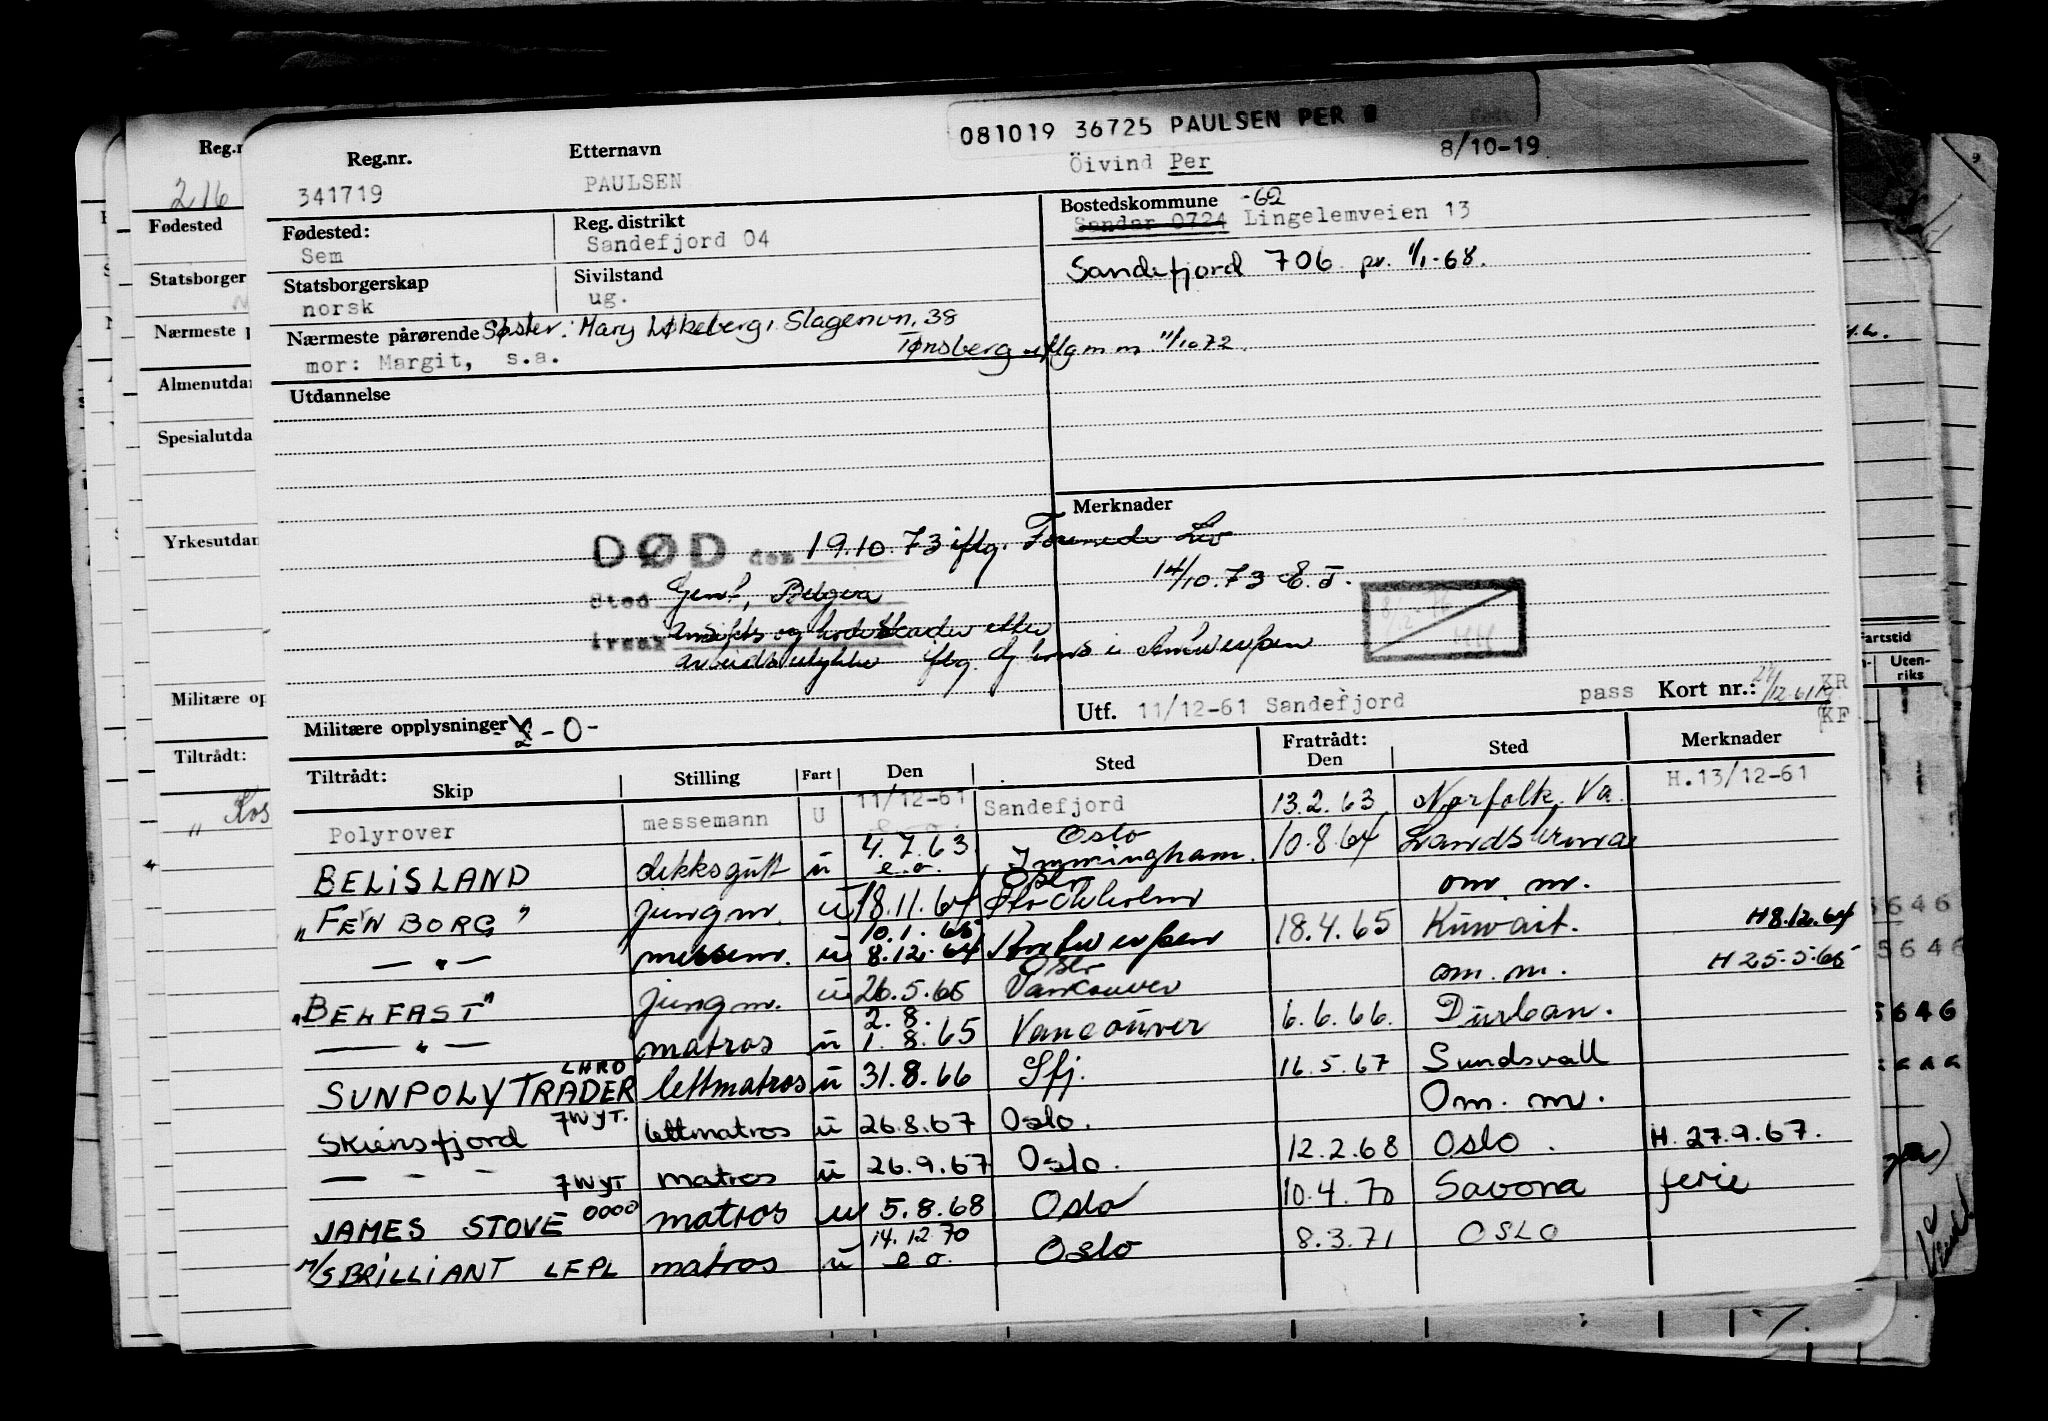 081019 36725 PAULSEN PER
Reg.nr. Etternavn Öivind Per 8/10-19
341719 PAULSEN
Fødested: Reg. distrikt Bostedskommune -62
Sem Sandefjord 04 Sandar 0724 Lingelemveien 13
Statsborgerskap Sivilstand Sandefjord 706 pr. 1/1-68.
norsk ug.
Nærmeste pårørende Søster: Mary Løkeberg, Slagenvn. 38
mor: Margit, s.a. Tønsberg iflg m.m. 11/10 72
Utdannelse
Merknader
DØD den 19.10.73 iflg. Forenede Liv
14/10.73 E.T.
Sted Gent, Belgia
Årsak Ansikts og hodeskader etter
arbeidsulykke iflg. Gj kons i Antwerpen
Militære opplysninger -0- Utf. 11/12-61 Sandefjord pass Kort nr.: KR
KF
Tiltrådt: Fratrådt:
Skip Stilling Fart Den Sted Den Sted Merknader
Polyrover messemann U 11/12-61 Sandefjord 13.2.63 Norfolk, Va. H.13/12-61
BELISLAND dekksgutt u 4.7.63 e.o. Oslo Immingham. 10.8.64 Landskrona
"FERNBORG" jungm. u 18.11.64 Oslo Stockholm om. m.
— " — messem. u 10.1.65 8.12.64 Antwerpen 18.4.65 Kuwait. H 8.12.64
"BELFAST" jungm. u 26.5.65 Oslo Vancouver om. m. H 25.5.65
— " — matros u 2.8. 1.8.65 Vancouver 6.6.66. Durban.
SUNPOLYTRADER LHRO lettmatros u 31.8.66 Sfj. 16.5.67 Sundsvall
Skiensfjord 7WYT. lettmatros u 26.8.67 Oslo. Om. m.
— " — 7WYT matros u 26.9.67 Oslo. 12.2.68 Oslo. H. 27.9.67.
JAMES STOVE 0000 matros u 5.8.68 Oslo 10.4.70 Savona ferie
M/S BRILLIANT LEPL matros u 14.12.70 e.o. Oslo 8.3.71 OSLO
Reg.n
216
Fødested
Statsborger
Nærmeste p
Almenutdan
Spesialutda
Yrkesutdan
Militære op
Tiltrådt:
" Ros
artstid
Uten-
riks
646
5646
5646